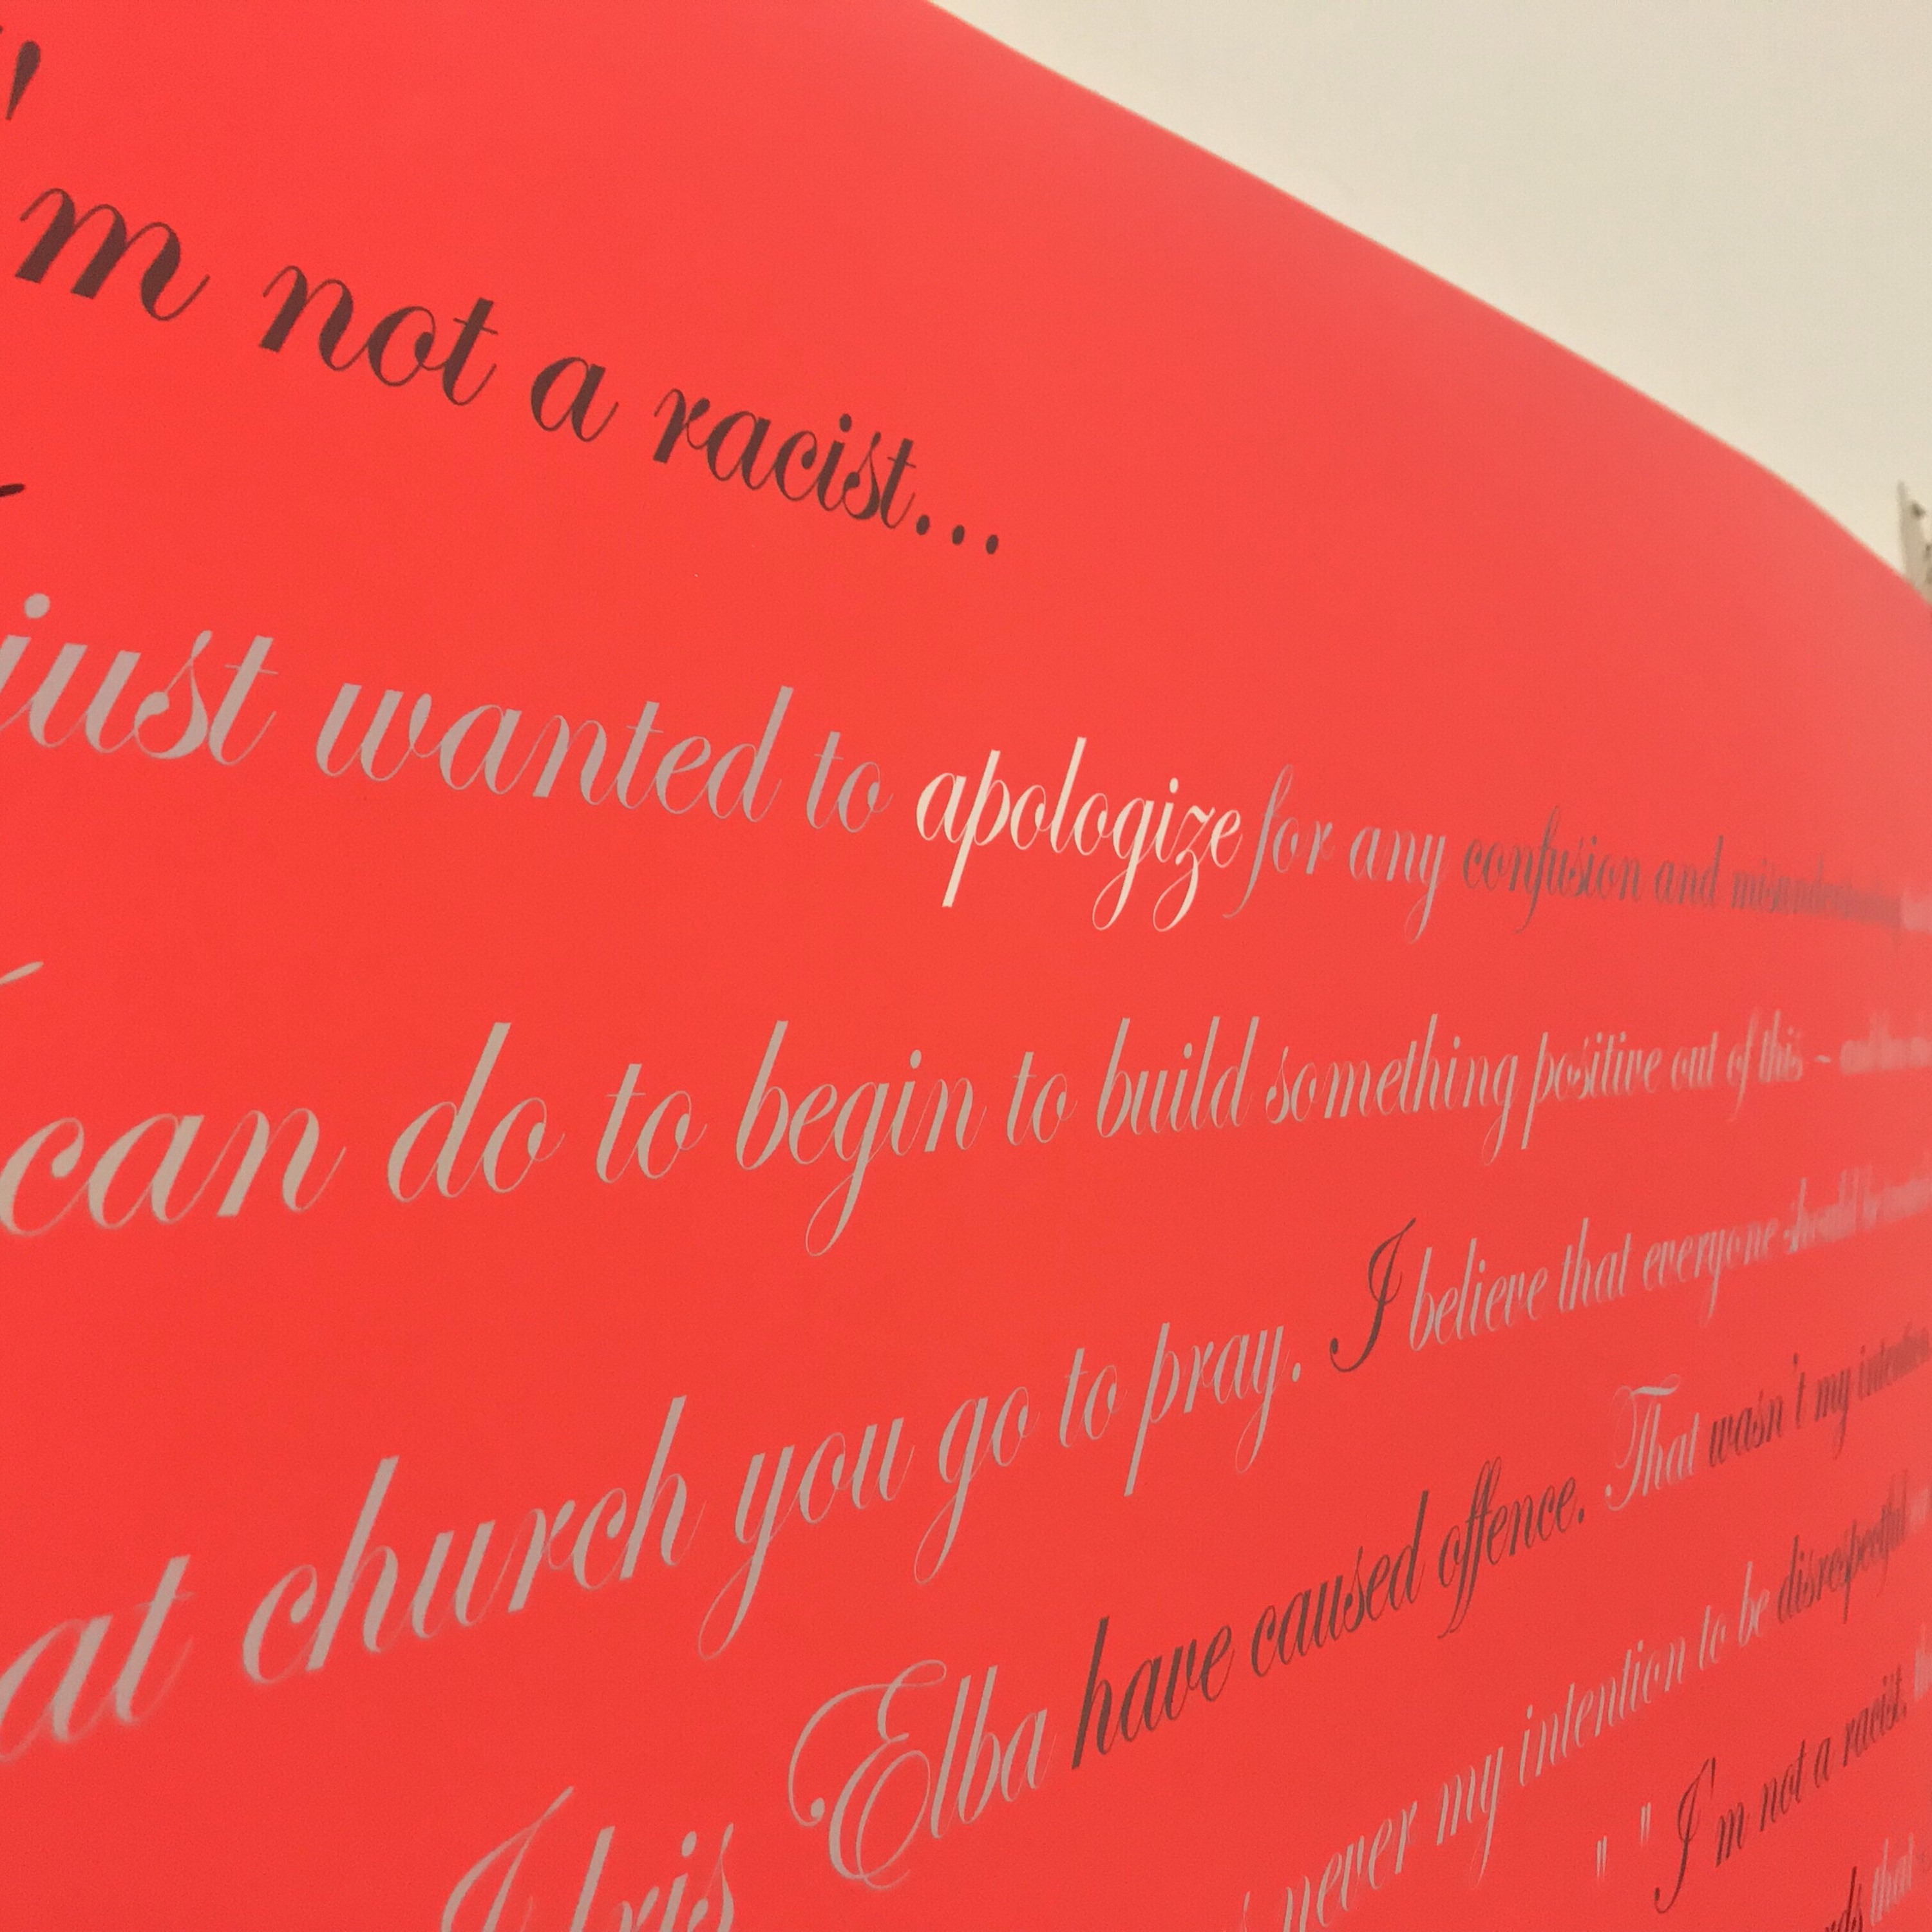 'm not a racist...
just wanted to apologize for any confusion and misunderstanding
can do to begin to build something positive out of this ~
at church you go to pray. I believe that everyone should be
Idris Elba have caused offence. That wasn't my intention
never my intention to be disrespectful
" " I'm not a racist.
that